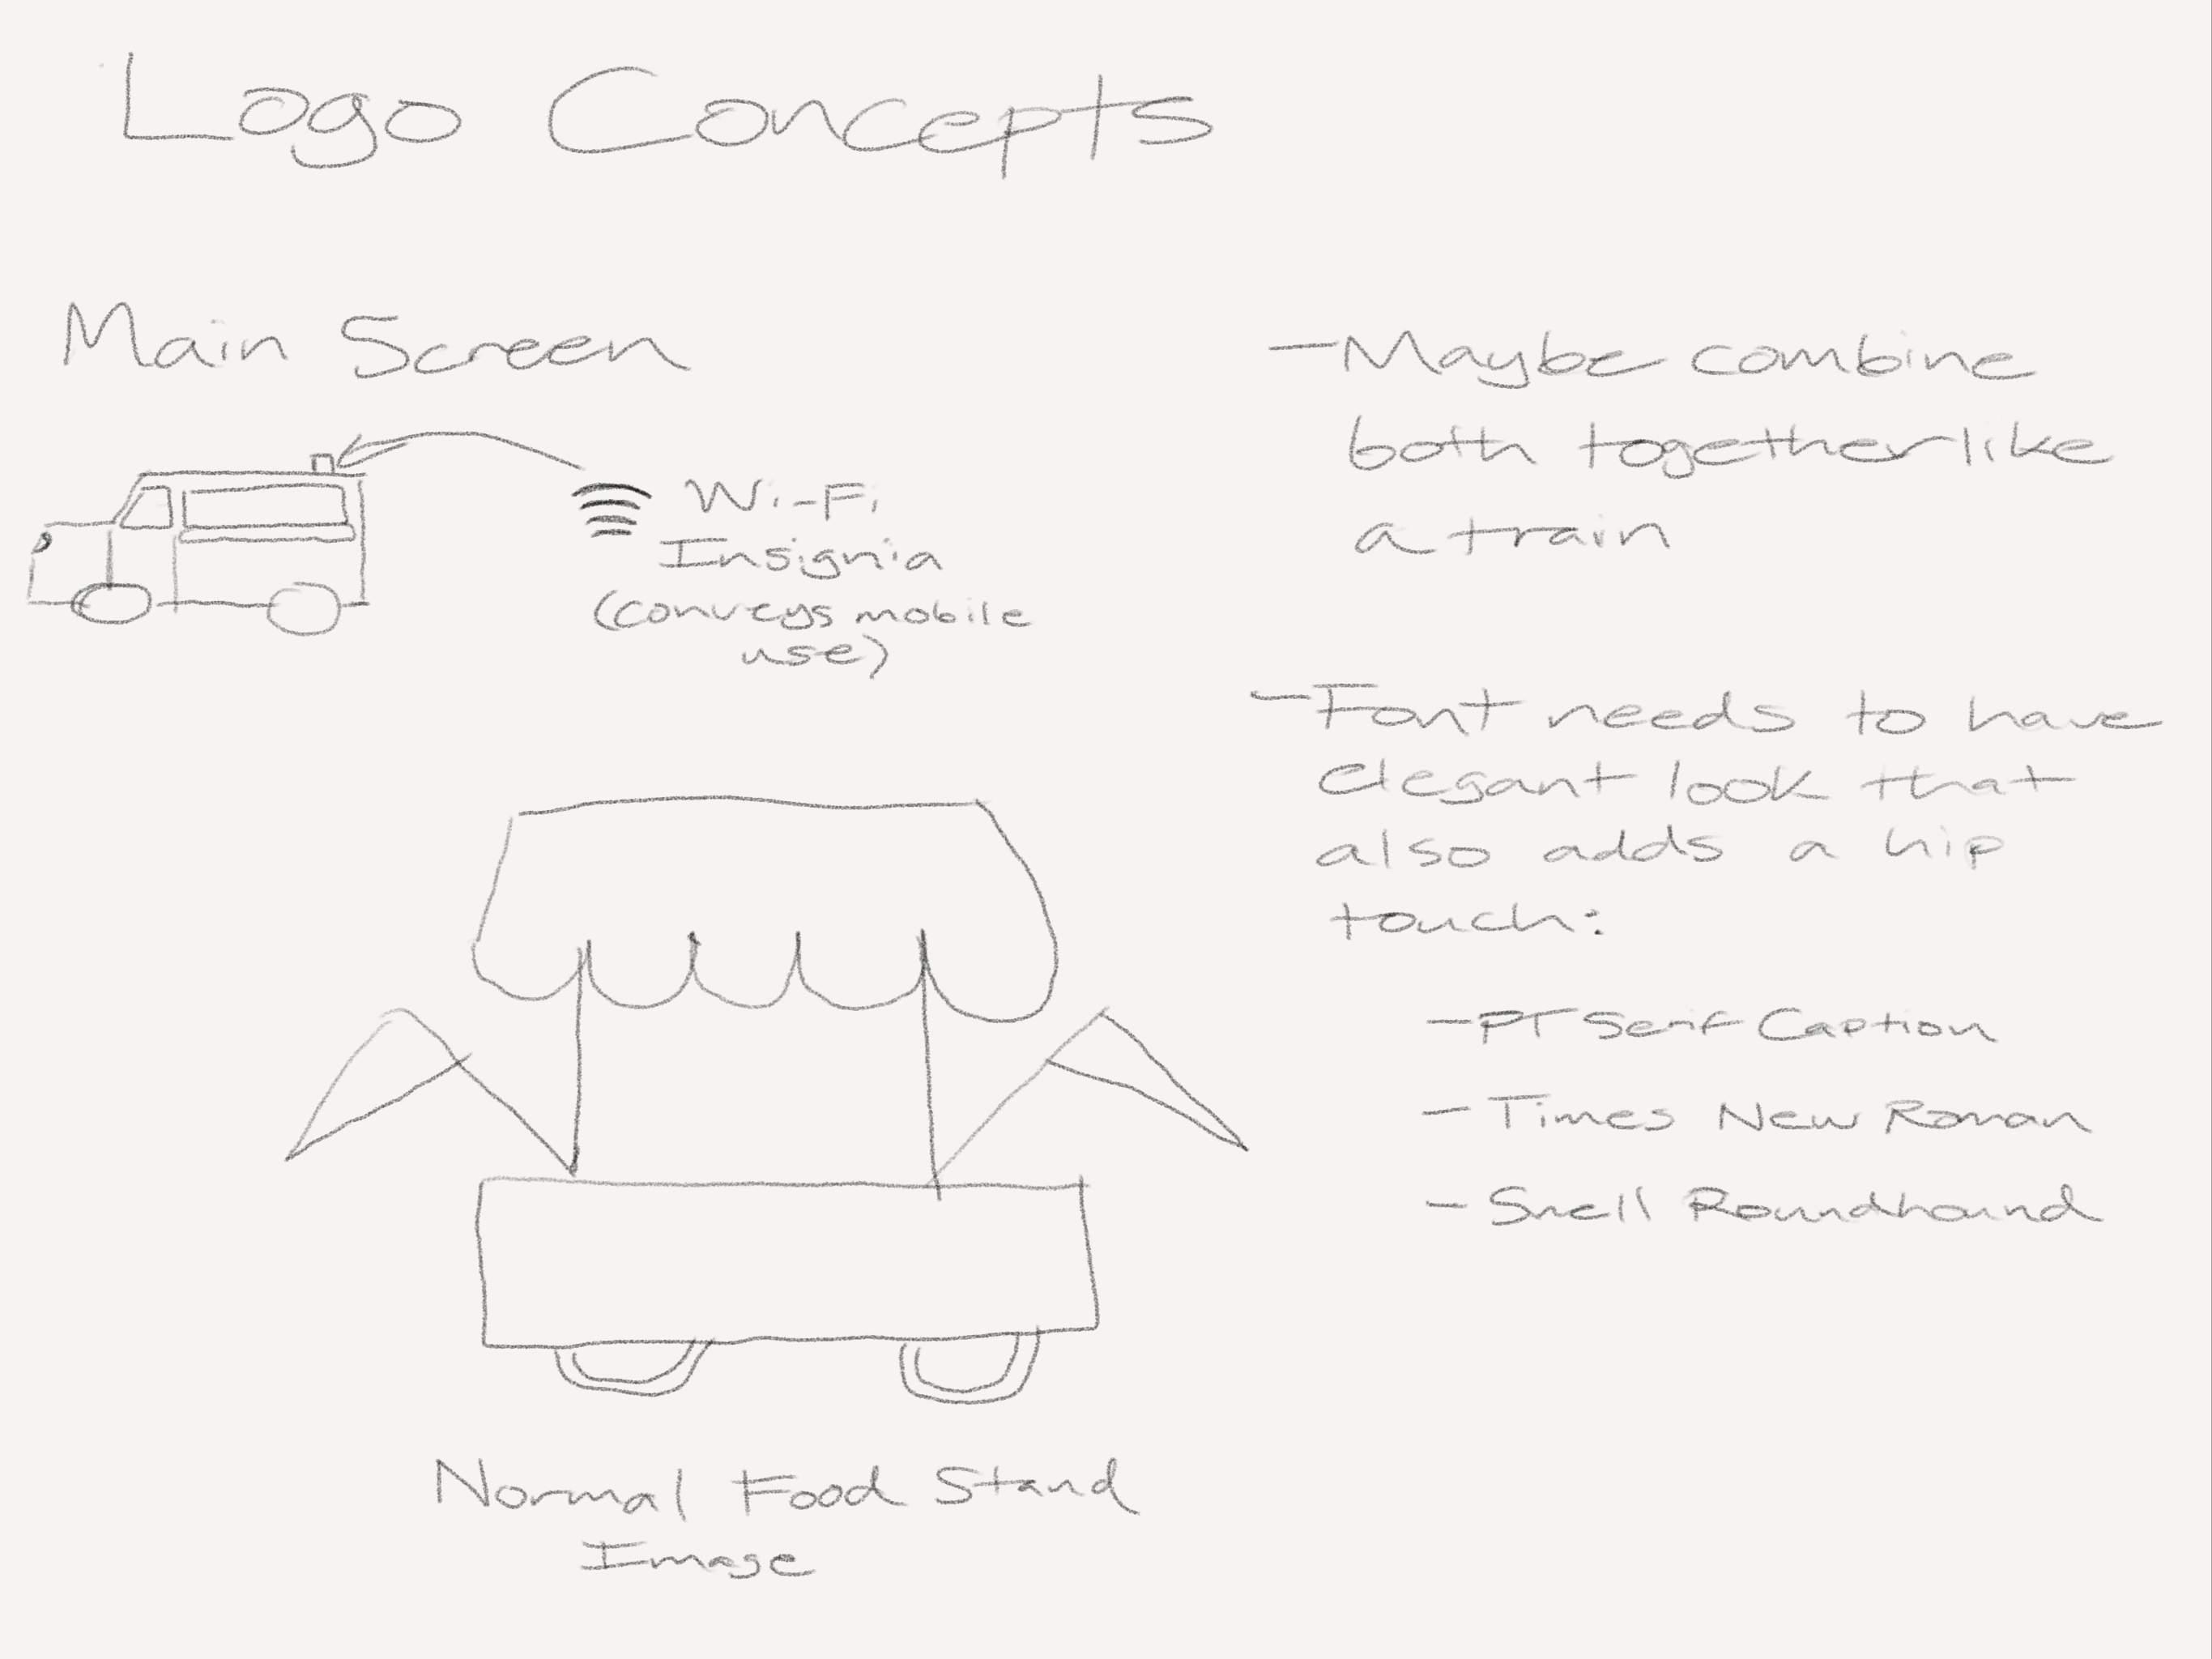 Logo Concepts
Main Screen
Wi-Fi
Insignia
(conveys mobile
use)
Normal Food Stand
Image
-Maybe combine
both together like
a train
-Font needs to have
elegant look that
also adds a hip
touch:
-PT Serif Caption
- Times New Roman
- Snell Roundhound